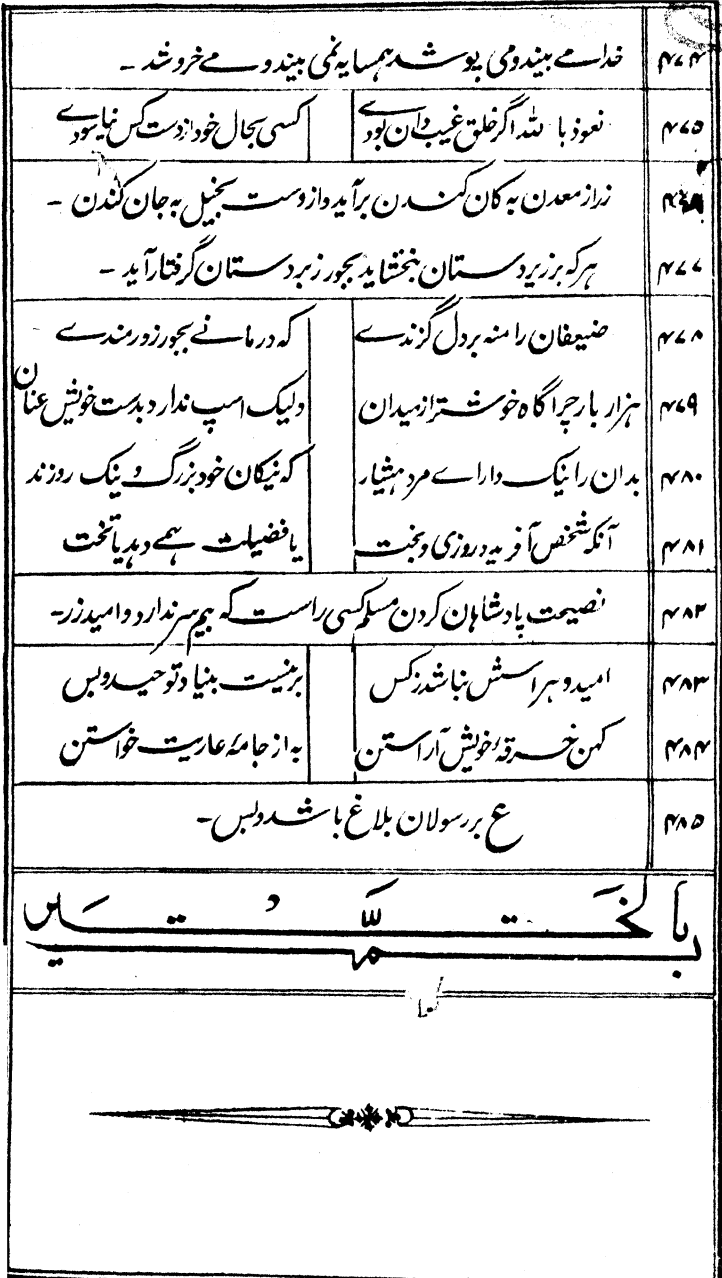 ۴۷۴ خدا مے بیند و می پوشد ہمسایہ نمی بیند و مے خروشد ۔
۴۷۵ نعوذ باللہ اگر خلق غیب دان بودے کسی بحال خود از دست کس نیاسودے
زر از معدن بہ کان کندن برآید و از دست بخیل بہ جان کندن ۔
۴۷۷ ہر کہ بر زیردستان نبخشاید بجور زبردستان گرفتار آید ۔
۴۷۸ ضعیفان را منہ بر دل گزندے کہ درمانے بجور زورمندے
۴۷۹ ہزار بار چراگاہ خوشتر از میدان ولیک اسپ ندارد بدست خویش عنان
۴۸۰ بدان را نیک دار اے مرد ہشیار کہ نیکان خود بزرگ و نیک روزند
۴۸۱ آنکہ شخص آفرید و روزی و بخت یا فضیلت ہمے دہد یا تخت
۴۸۲ نصیحت پادشاہان کردن مسلم کسی راست کہ بیم سر ندارد و امید زر۔
۴۸۳ امید و ہراسش نباشد ز کس برینست بنیاد توحید و بس
۴۸۴ کہن خرقۂ خویش آراستن بہ از جامۂ عاریت خواستن
۴۸۵ ع بر رسولان بلاغ باشد و بس ۔